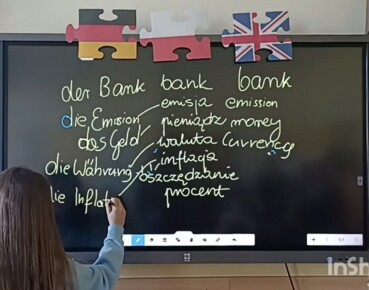 der Bank bank bank
die Emission emisja emission
das Geld pieniądze money
die Währung waluta currency
inflacja
die Inflat oszczędzanie
procent
1/1
InSh